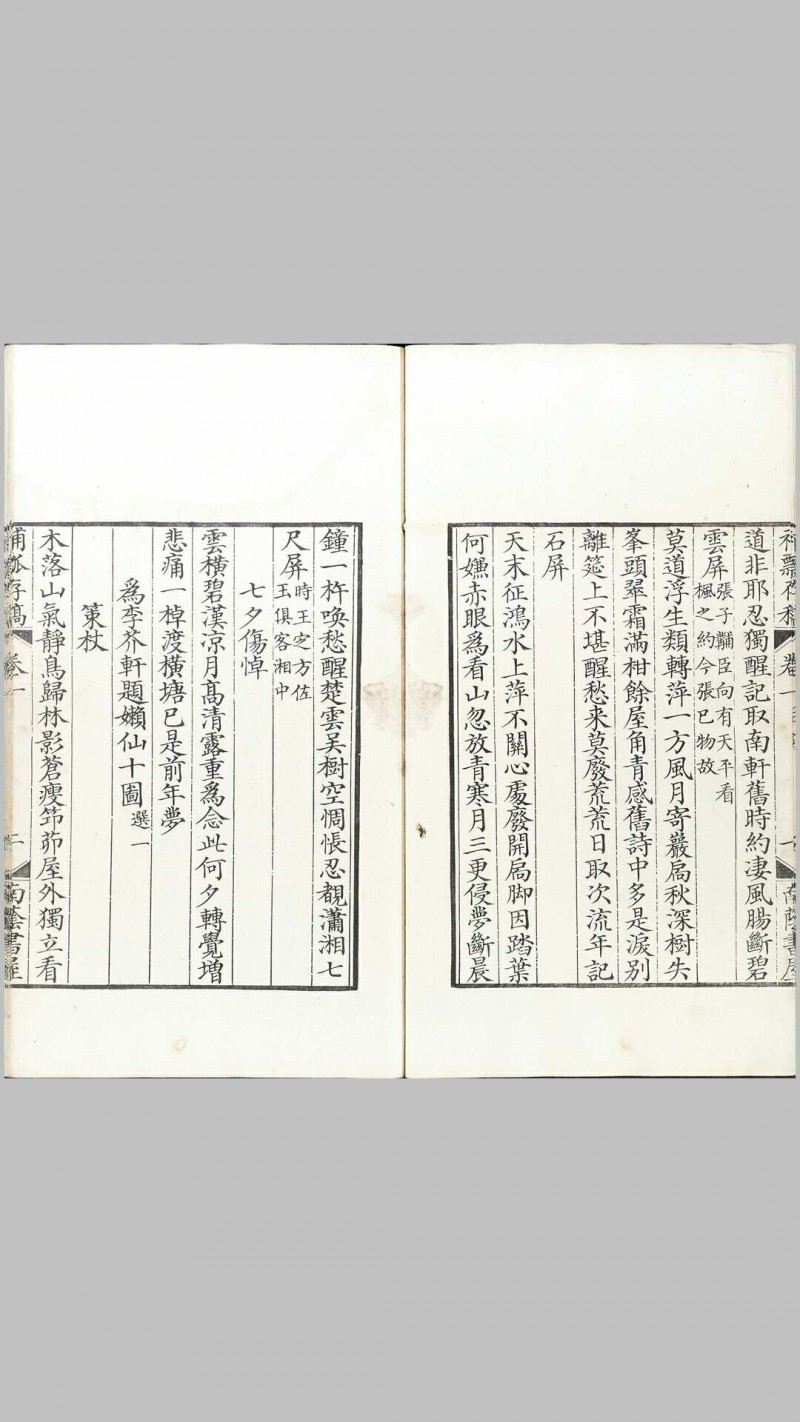 道非耶忍獨醒記取南軒舊時約淒風腸斷碧
雲屏
張子黼臣向有天平看
楓之約今張已物故
莫道浮生類轉萍一方風月寄巖扄秋深樹失
峯頭翠霜滿柑餘屋角青感舊詩中多是淚別
離筵上不堪醒愁來莫廢荒荒日取次流年記
石屏
天末征鴻水上萍不關心處廢開扄脚因踏葉
何嫌赤眼爲看山忽放青寒月三更侵夢斷晨
鐘一杵喚愁醒楚雲吳樹空惆悵忍覩瀟湘七
尺屏
時王定方佐
王俱客湘中
七夕傷悼
雲橫碧漢凉月高清露重爲念此何夕轉覺增
悲痛一棹渡橫塘已是前年夢
爲李芥軒題嬾仙十圖
選一
策杖
木落山氣靜鳥歸林影蒼瘦筇茆屋外獨立看
卷一
二